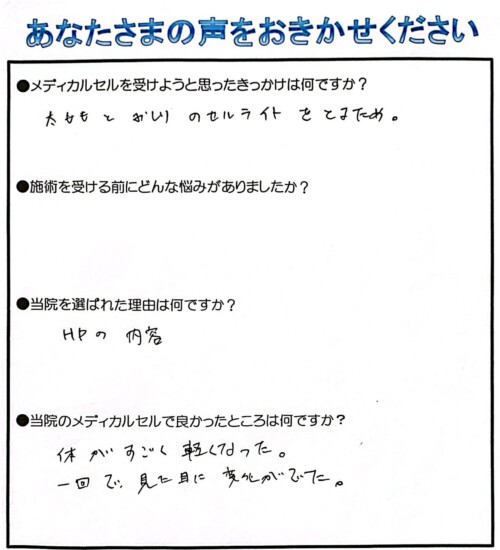 あなたさまの声をおきかせください
●メディカルセルを受けようと思ったきっかけは何ですか？
太ももと おしりのセルライトをとるため。
●施術を受ける前にどんな悩みがありましたか？
●当院を選ばれた理由は何ですか？
HPの 内容
●当院のメディカルセルで良かったところは何ですか？
体がすごく軽くなった。
一回で、見た目に変化がでた。